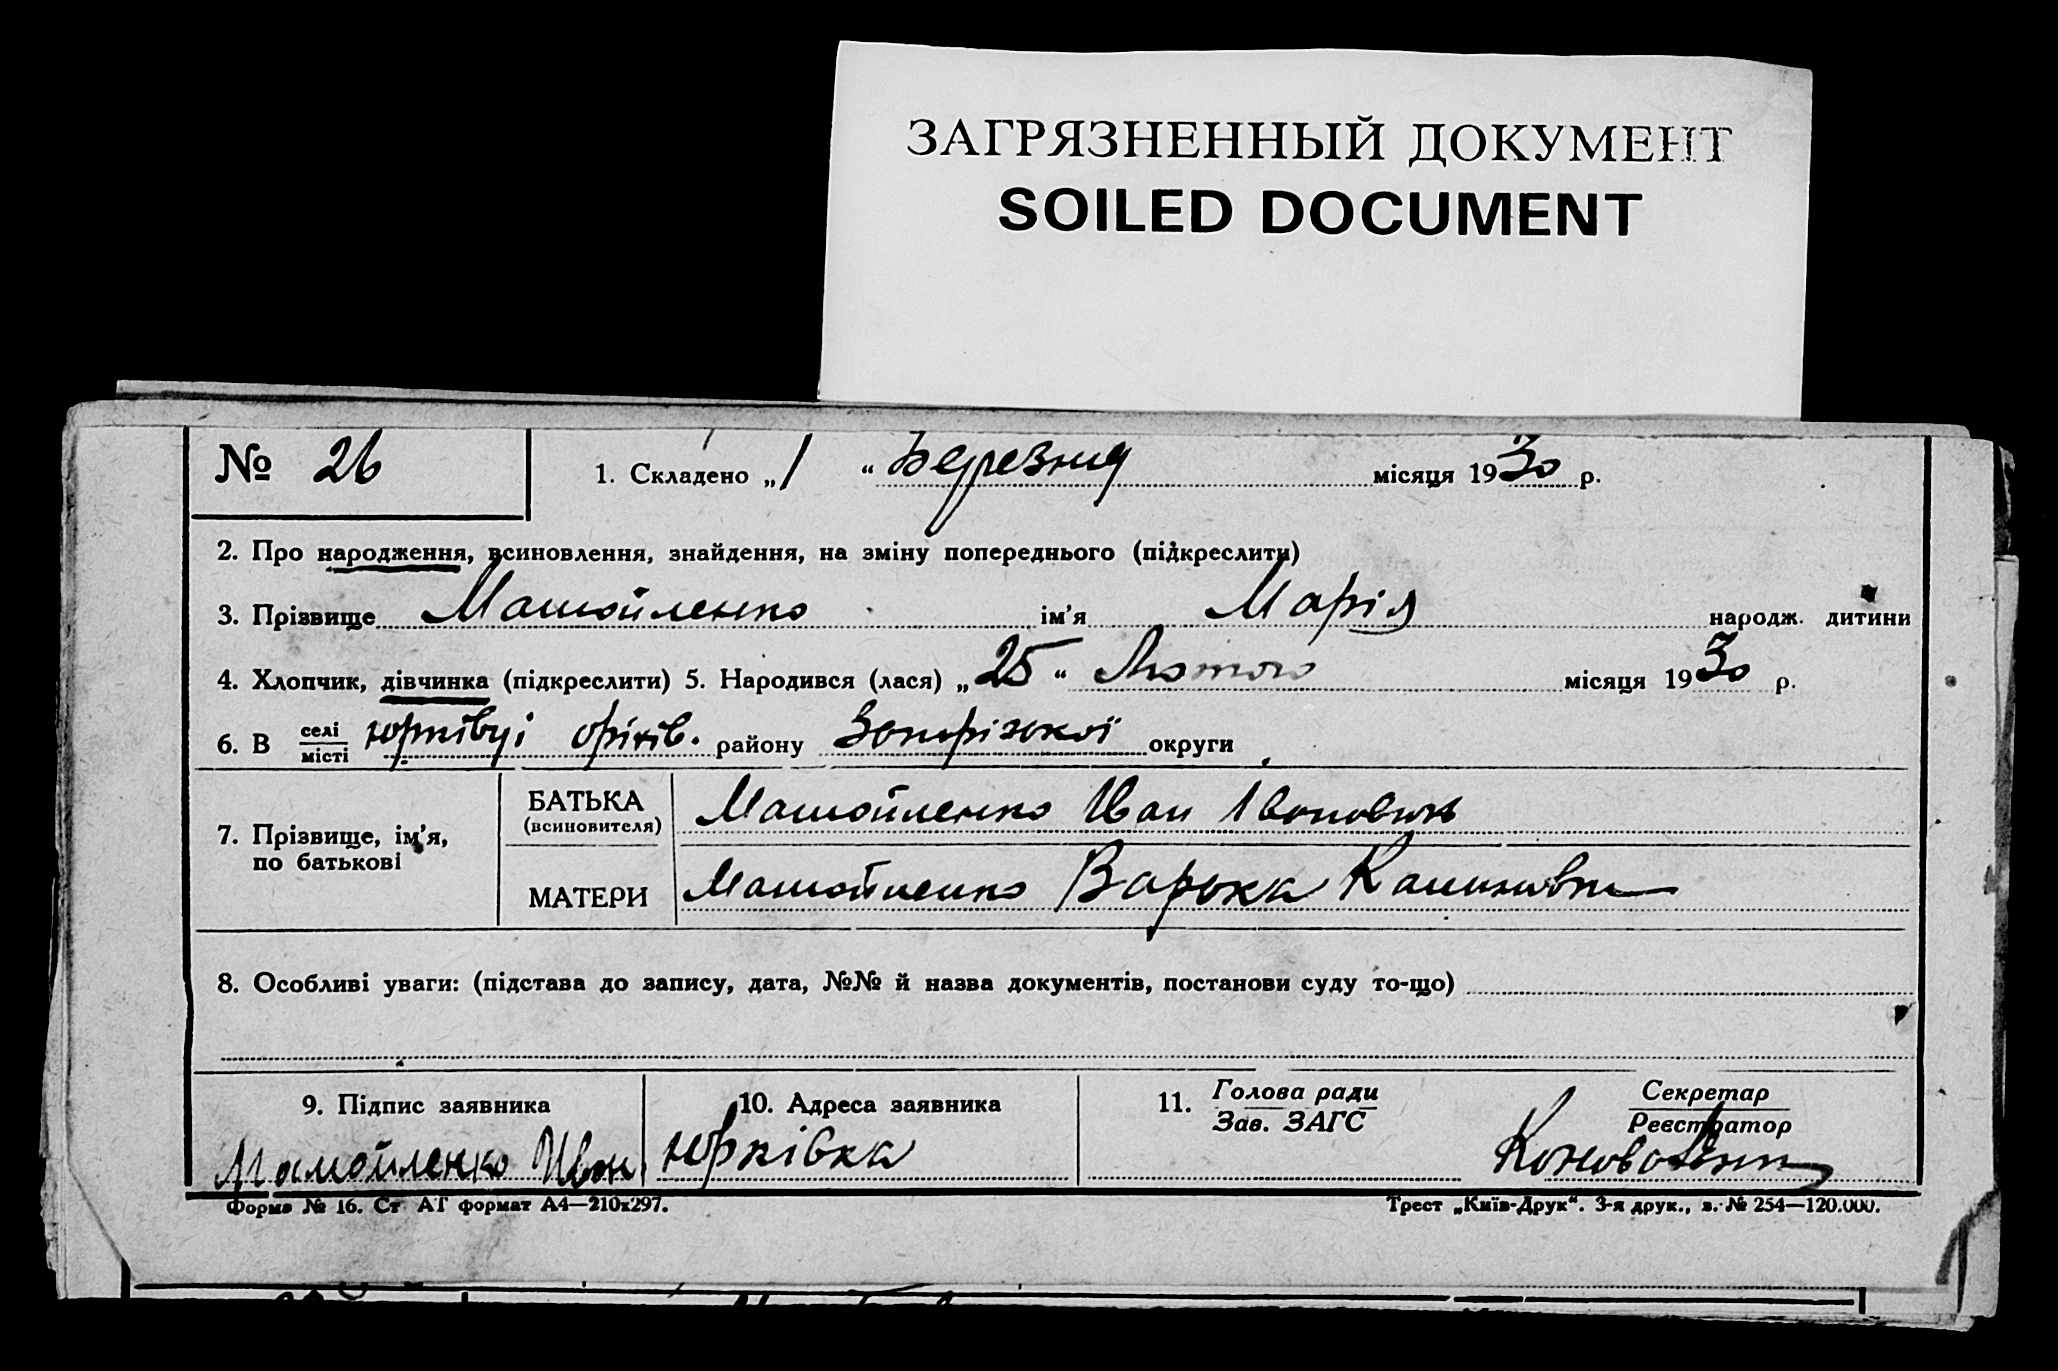 ЗАГРЯЗНЕННЫЙ ДОКУМЕНТ
SOILED DOCUMENT
№ 26
1. Складено „1“ Березня місяця 1930 р.
2. Про народження, всиновлення, знайдення, на зміну попереднього (підкреслити)
3. Прізвище Мамойленко ім’я Марія народж. дитини
4. Хлопчик, дівчинка (підкреслити) 5. Народився (лася) „25“ Лютого місяця 1930 р.
6. В селі Юрківці оріхів. району Запорізької округи
місті
7. Прізвище, ім’я,
по батькові
БАТЬКА
(всиновителя)
Мамойленко Иван Іванович
МАТЕРИ Мамойленко Варька
8. Особливі уваги: (підстава до запису, дата, №№ й назва документів, постанови суду то-що)
9. Підпис заявника
Мамойленко Иван
10. Адреса заявника
Юрківка
11. Голова ради
Зав. ЗАГС
Секретар
Реєстратор
Форма № 16. Ст АГ формат А4—210х297.
Трест „Київ-Друк“. 3-я друк., з. № 254—120.000.